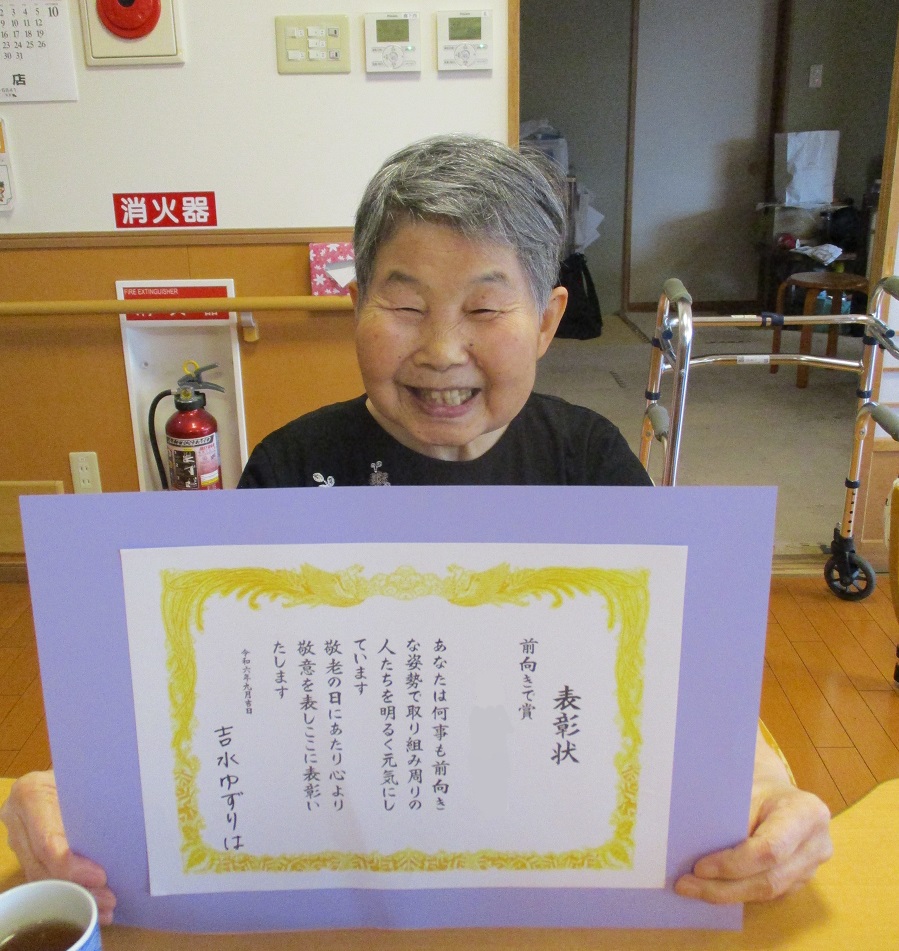 2 3 4 5 10
9 10 11 12
16 17 18 19
23 24 25 26
30 31
店
消火器
FIRE EXTINGUISHER
消火器
表彰状
前向きで賞
あなたは何事も前向き
な姿勢で取り組み周りの
人たちを明るく元気にし
ています
敬老の日にあたり心より
敬意を表しここに表彰い
たします
令和六年九月吉日
吉水ゆずりは